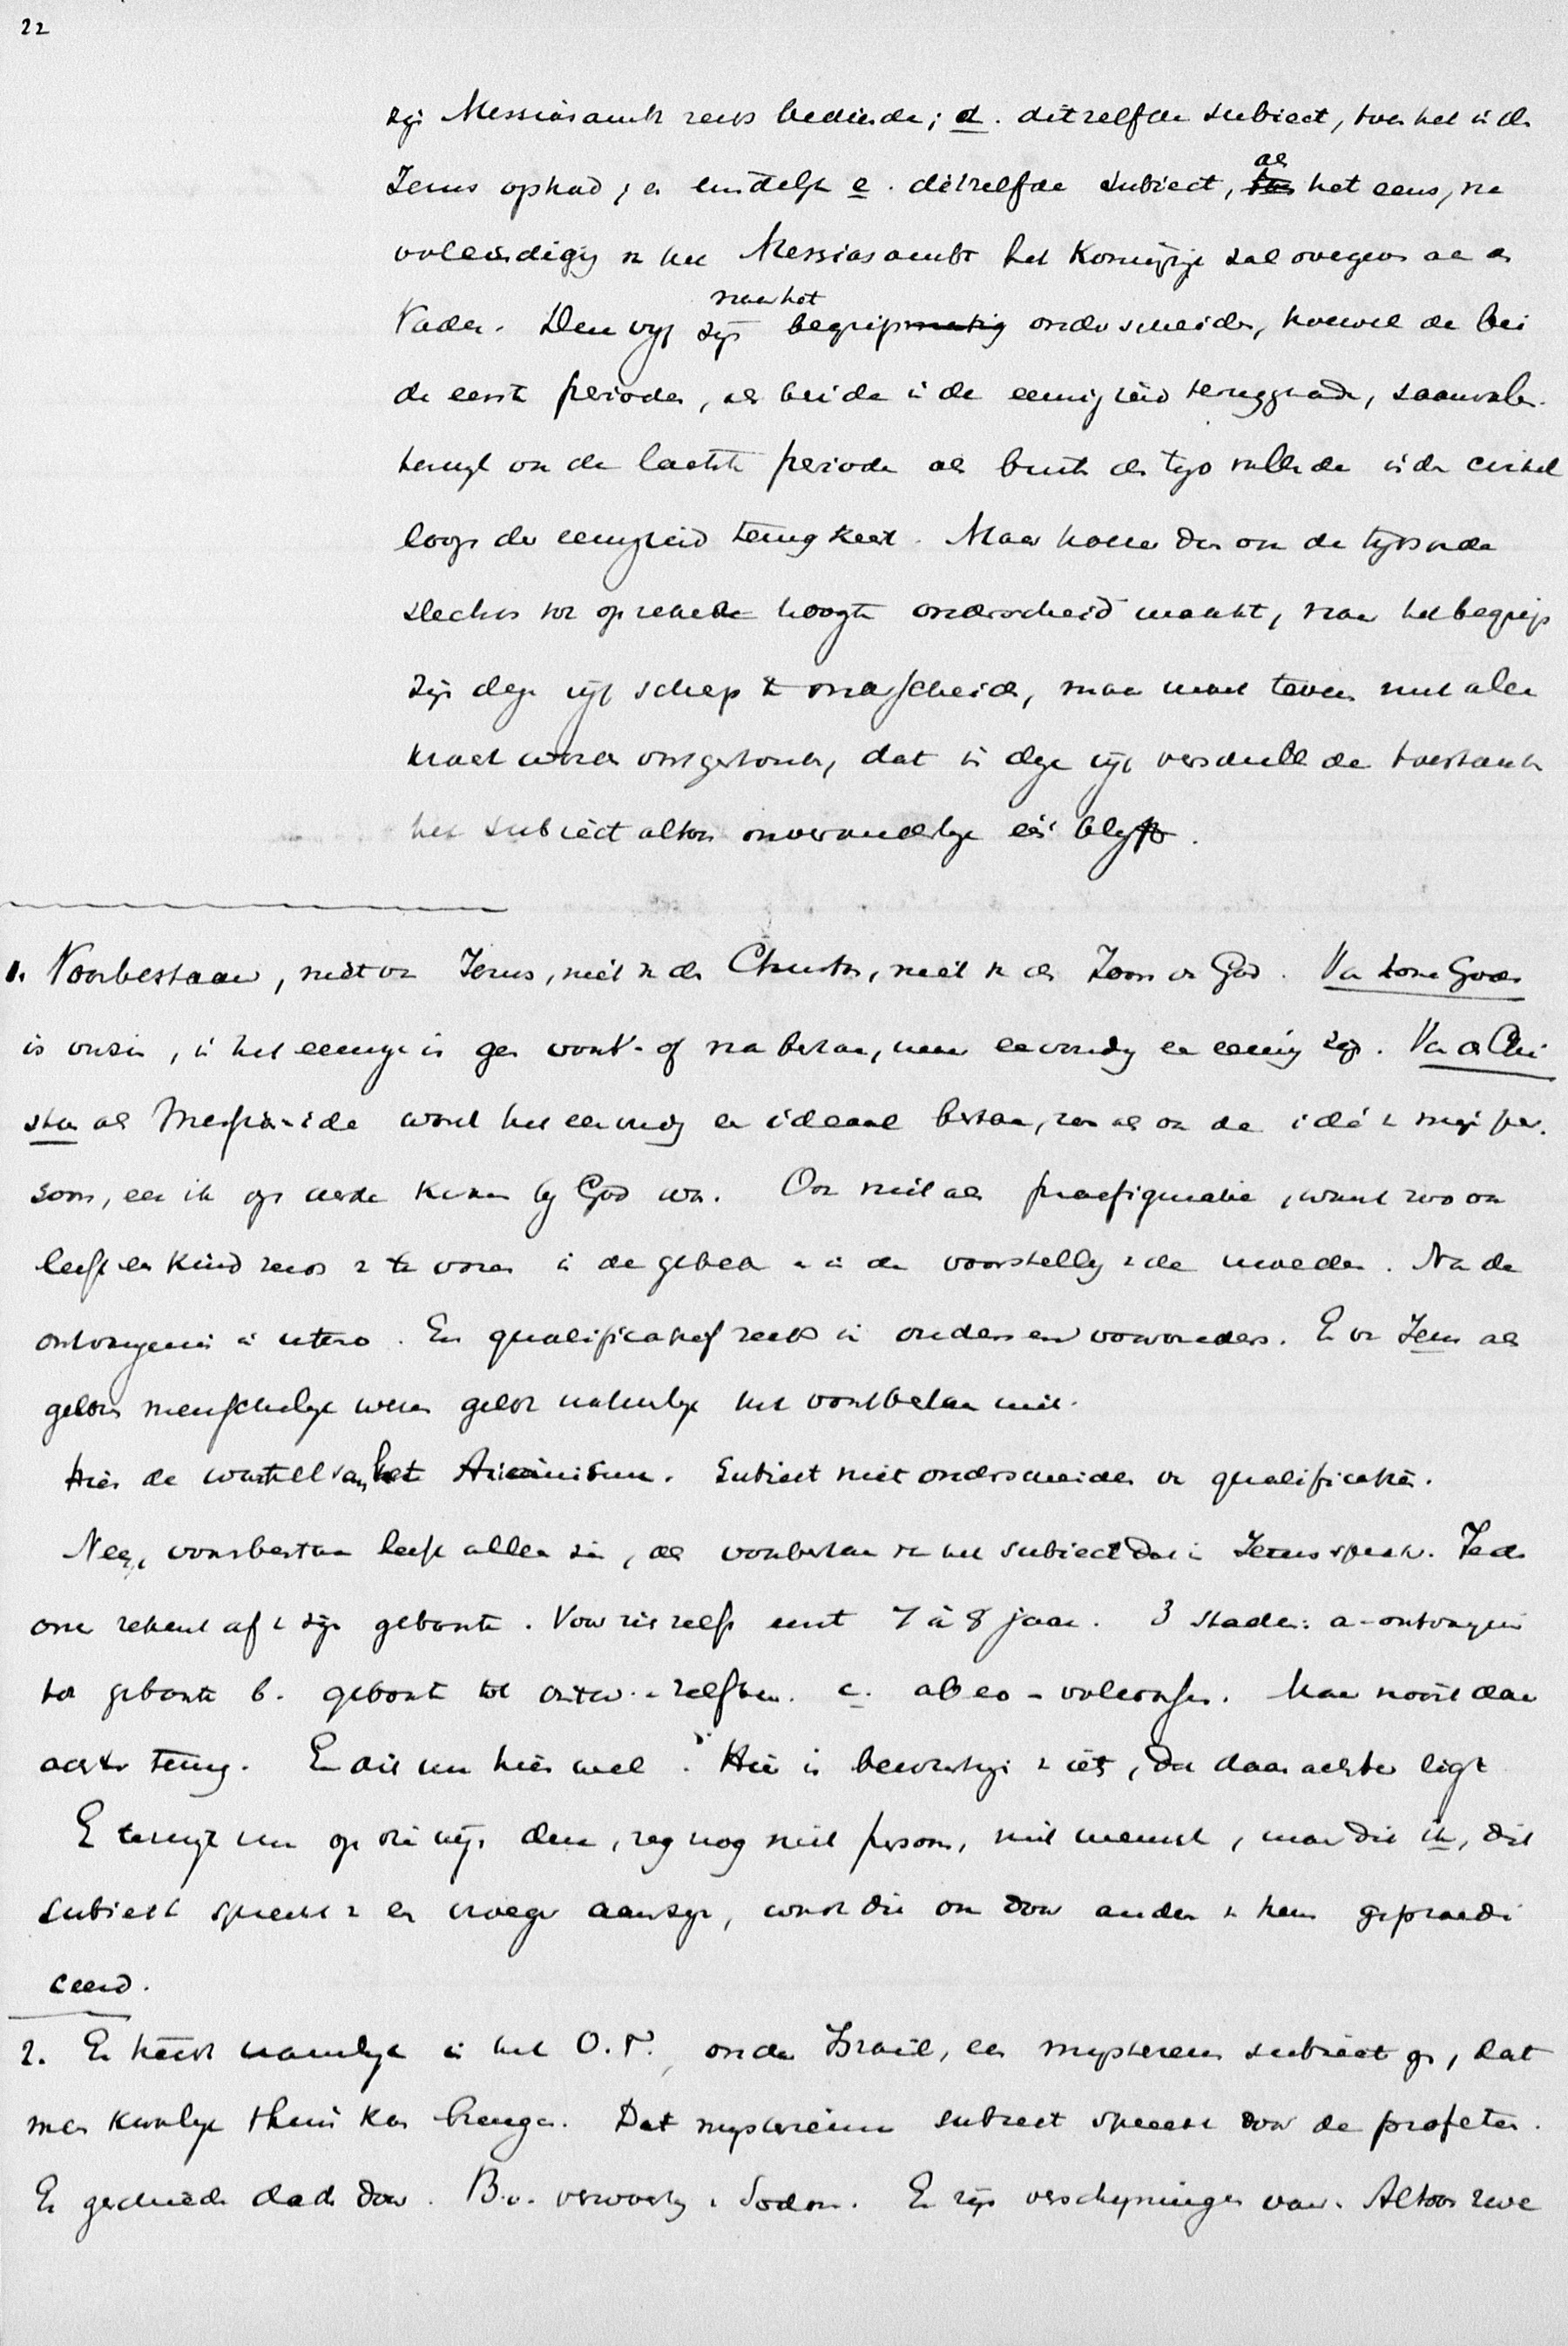 22
zijn Messiasambt reeds bediende; d. ditzelfde subiect, toen het in de
Jezus optrad; en eindelijk e. ditzelfde subiect, als het eens, na
voleindiging van het Messiasambt het Koninkrijk zal overgeven aan den
Vader. Deze vijf zijn naar het begrip onderscheiden, hoewel de bei
de eerste perioden, als beide in de eeuwigheid teruggaande, saamvallen
terwijl ook de laatste periode als buiten den tijd vallende in den cirkel
loop der eeuwigheid terugkeert. Maar hoewel dus ook de tijdsorde
slechts tot op zekere hoogte onderscheid maakt, naar het begrip
zijn deze vijf scherp te onderscheiden, maar moet tevens met allen
nadruk worden vastgehouden, dat in deze vijf verschillende toestanden
het subiect altoos onveranderlijk één blijft.
1. Voorbestaan, niet van Jezus, niet van den Christus, niet van den Zoon van God. Van Zone Gods
is onzin, in het eeuwige is geen voor- of na bestaan, maar eenvoudig een eeuwig zijn. Van den Chri
stus als Messias-idee wordt het eenvoudig een ideaal bestaan, zooals ook de idee van mijn per
soon, eer ik op aarde kwam bij God was. Ook niet als praefiguratie, want zoo ook
leeft een kind reeds van te voren in de gebeden en in de voorstelling van de moeder. Na de
ontvangenis in utero. En qualificatief reeds in ouders en voorouders. En van Jezus als
geboren menschelijk wezen geldt natuurlijk het voorbestaan niet.
Hier de wortel van het Arianisme. Subiect niet onderscheiden van qualificatie.
Neen, voorbestaan heeft alleen zin, als voorbestaan van het subiect dat in Jezus sprak. Ieder
onzer rekent af van zijn geboorte. Voor zich zelf eerst 7 à 8 jaar. 3 stadia: a - ontvangenis
tot geboorte b. geboorte tot ontw. v. zelfbew. c. ab eo - volwassen. Maar nooit daar
achter terug. En dit nu hier wel. Hier is bewustzijn van iets, dat daar achter ligt
En terwijl nu op die wijs deze, zeg nog niet persoon, niet mensch, maar dit ik, dit
subiect spreekt van een vroeger aanzijn, wordt dit ook door anderen van hem gepraedi
ceerd.
2. Er treedt namelijk in het O.T., onder Israël, een mysterieus subiect op, dat
men kwalijk thuis kan brengen. Dat mysterieuse subiect spreekt door de profeten.
Er geschieden daden door. B.v. verwoesting v. Sodom. Er zijn verschijningen van. Altoos twee